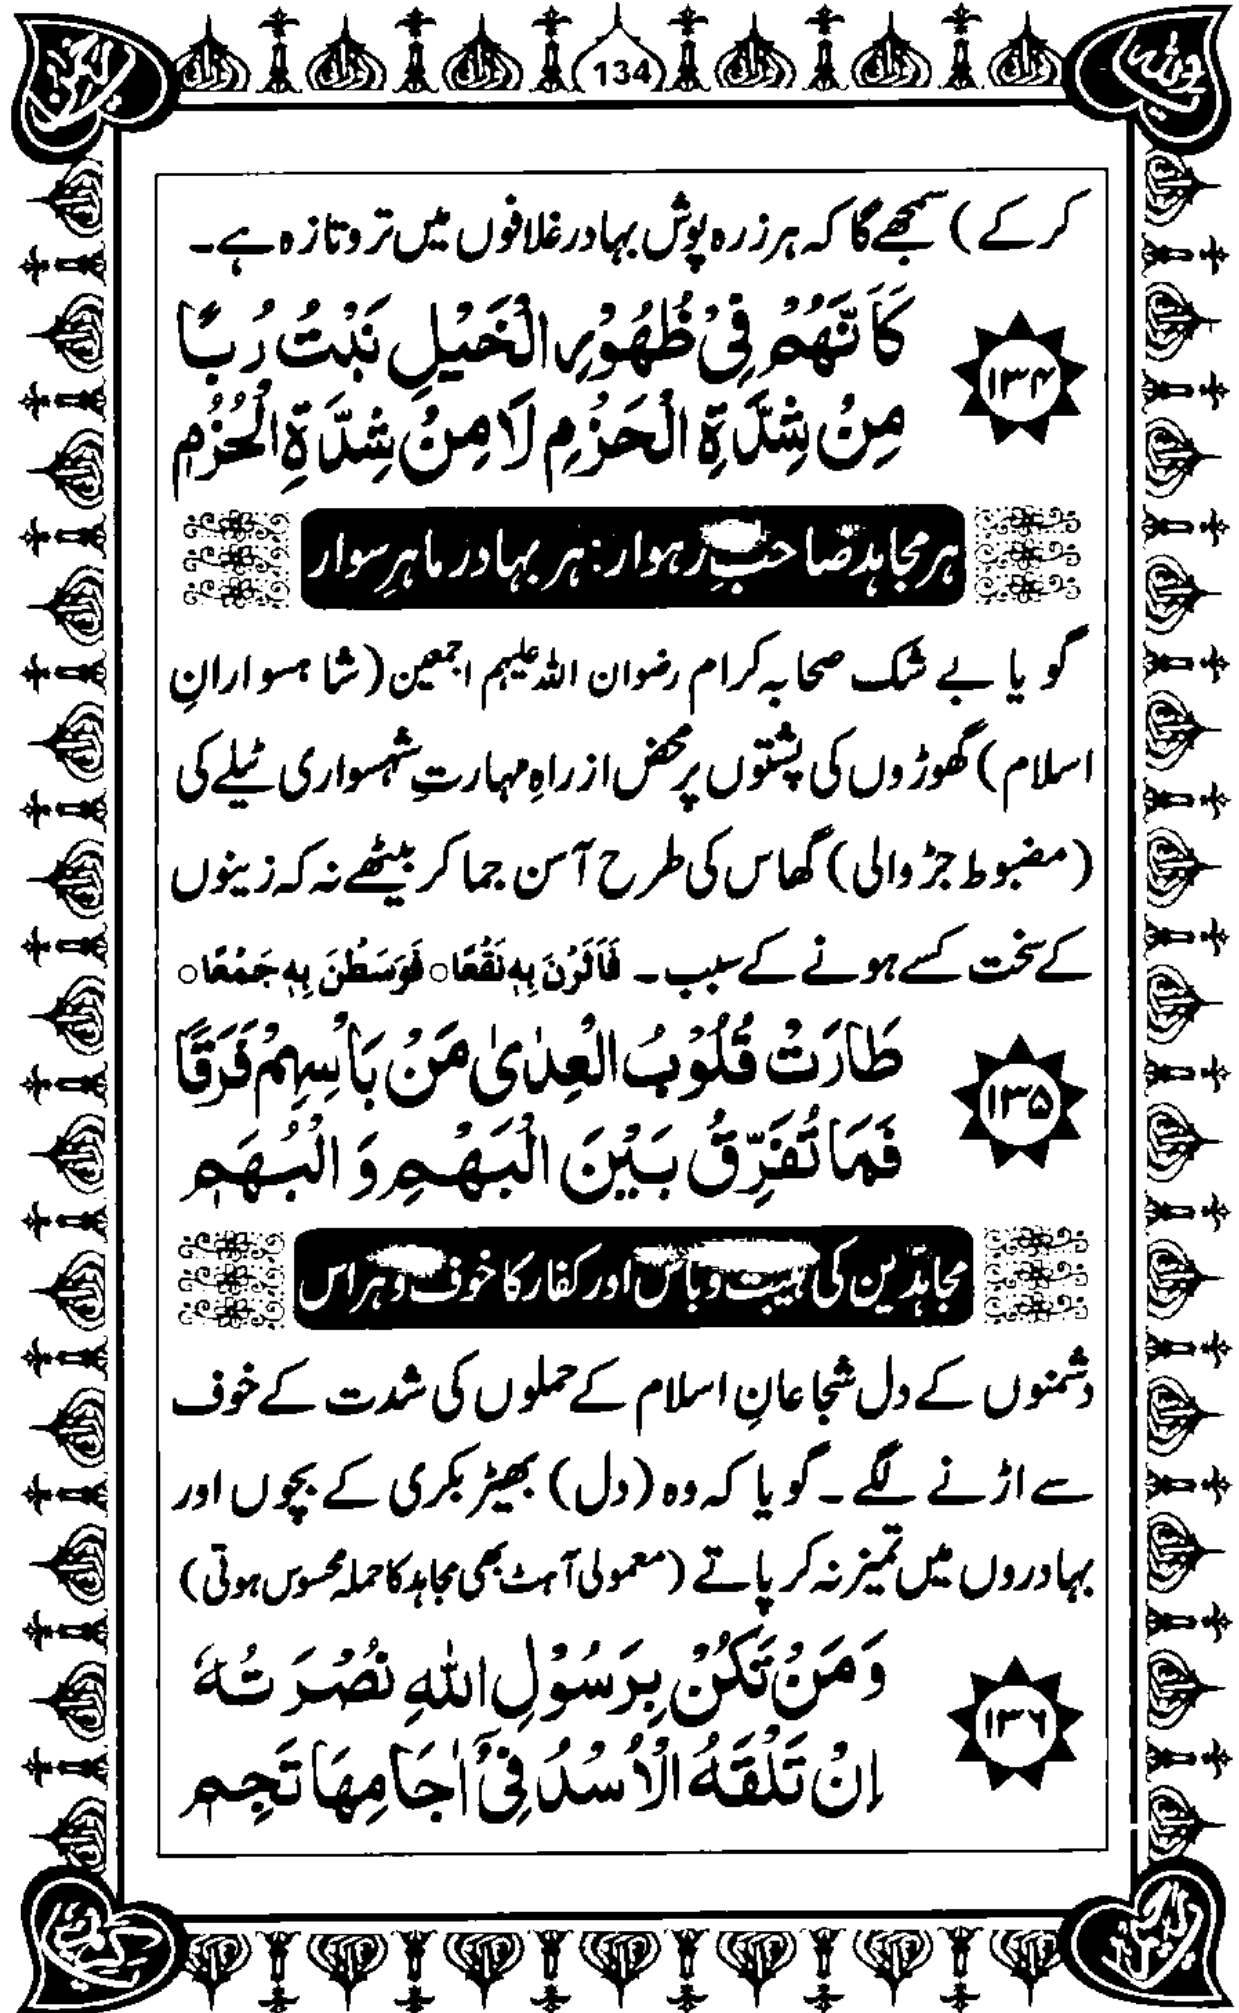 134
کرکے) سمجھے گا کہ ہر زرہ پوش بہادر غلافوں میں تروتازہ ہے۔
۱۳۴
كَاَنَّهُمْ فِيْ ظُهُوْرِ الْخَيْلِ نَبْتُ رُبًا
مِنْ شِدَّةِ الْحَزْمِ لَا مِنْ شِدَّةِ الْحُزُمِ
ہر مجاہد صاحبِ رہوار: ہر بہادر ماہرِ سوار
گویا بے شک صحابہ کرام رضوان اللہ علیہم اجمعین (شاہسوارانِ
اسلام) گھوڑوں کی پشتوں پر محض ازراہِ مہارتِ شہسواری ٹیلے کی
(مضبوط جڑ والی) گھاس کی طرح آسن جما کر بیٹھے نہ کہ زینوں
کے سخت کسے ہونے کے سبب۔ فَاَثَرْنَ بِهٖ نَقْعًا○ فَوَسَطْنَ بِهٖ جَمْعًا○
۱۳۵
طَارَتْ قُلُوْبُ الْعِدٰى مَنْ بَاْسِهِمْ فَرَقًا
فَمَا تُفَرِّقُ بَيْنَ الْبَهْمِ وَ الْبُهَمِ
مجاہدین کی ہیبت و باس اور کفار کا خوف و ہراس
دشمنوں کے دل شجاعانِ اسلام کے حملوں کی شدت کے خوف
سے اڑنے لگے۔ گویا کہ وہ (دل) بھیڑ بکری کے بچوں اور
بہادروں میں تمیز نہ کر پاتے (معمولی آہٹ بھی مجاہد کا حملہ محسوس ہوتی)
۱۳۶
وَ مَنْ تَكُنْ بِرَسُوْلِ اللّٰهِ نُصْرَتُهٗ
اِنْ تَلْقَهُ الْاُسْدُ فِيْ اٰجَامِهَا تَجِمِ